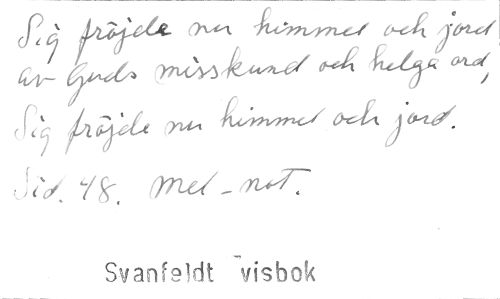 Sig fröjde nu himmel och jord
av Guds misskund och helga ord,
Sig fröjde nu himmel och jord.
Sid. 48. Mel-not.
Svanfeldt visbok